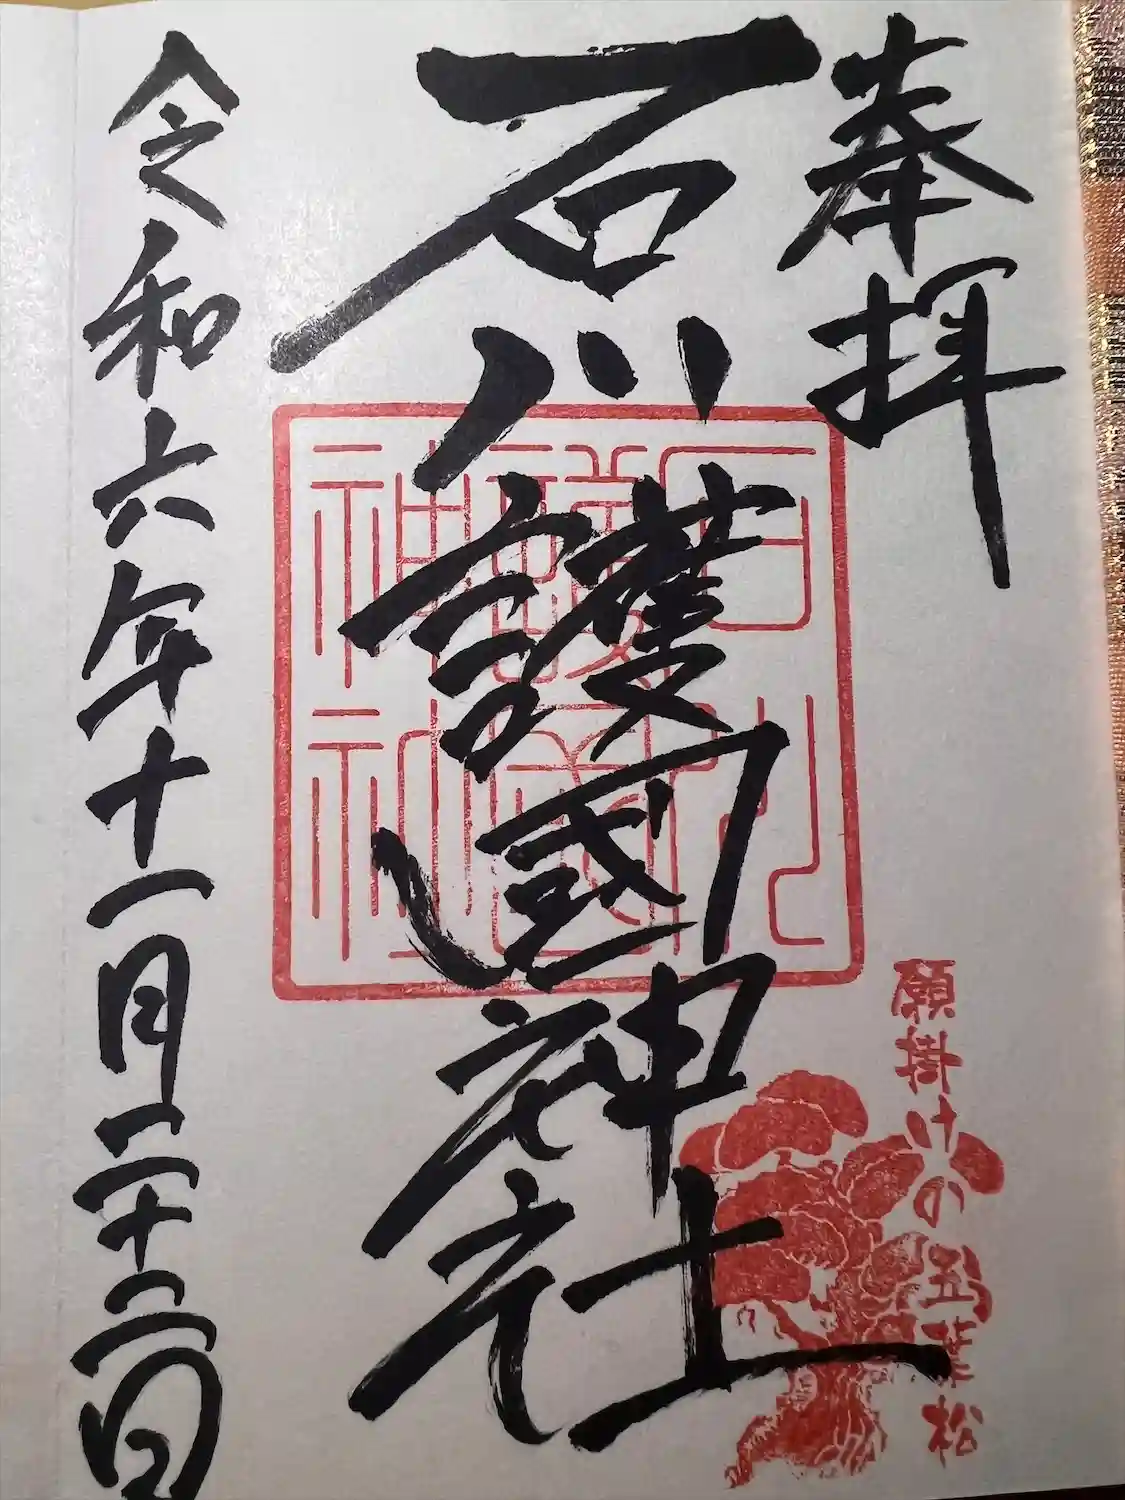 奉拝
石川護國神社
石川
護國
神社
願掛けの五葉松
令和六年十一月二十二日